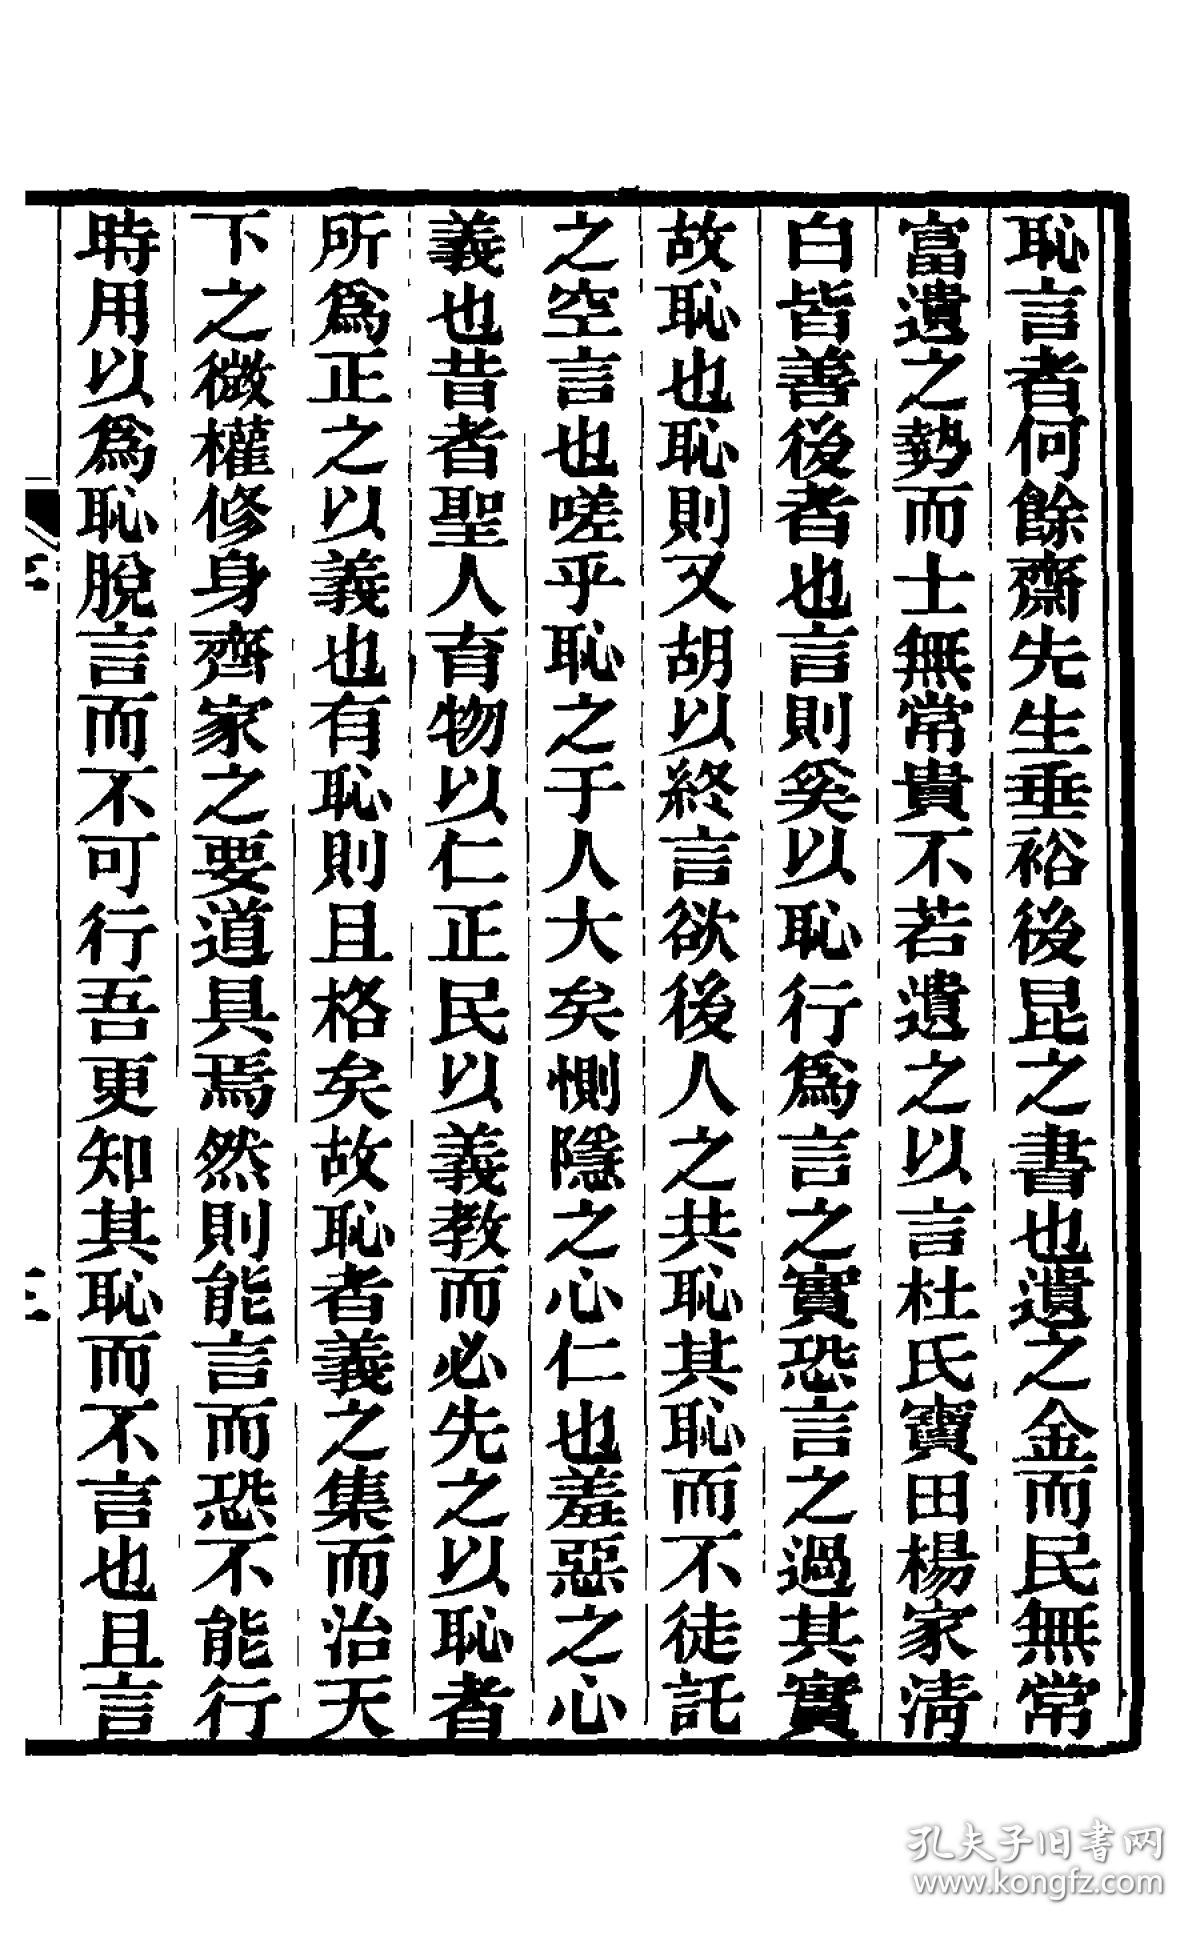 恥言者何餘齋先生垂裕後昆之書也遺之金而民無常
富遺之勢而士無常貴不若遺之以言杜氏寶田楊家淸
白皆善後者也言則奚以恥行爲言之實恐言之過其實
故恥也恥則又胡以終言欲後人之共恥其恥而不徒託
之空言也嗟乎恥之于人大矣惻隱之心仁也羞惡之心
義也昔者聖人育物以仁正民以義教而必先之以恥者
所爲正之以義也有恥則且格矣故恥者義之集而治天
下之微權修身齊家之要道具焉然則能言而恐不能行
時用以爲恥脫言而不可行吾更知其恥而不言也且言
孔夫子旧書网
www.kongfz.com